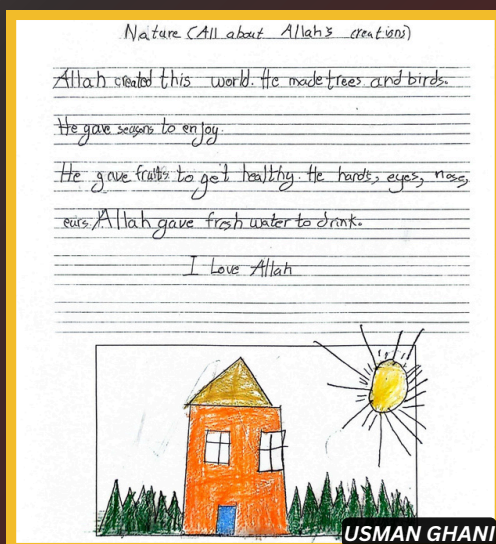 Nature (All about Allah's creations)
Allah created this world. He made trees and birds.
He gave seasons to enjoy.
He gave fruits to get healthy. He hands, eyes, nose,
ears. Allah gave fresh water to drink.
I Love Allah
USMAN GHANI